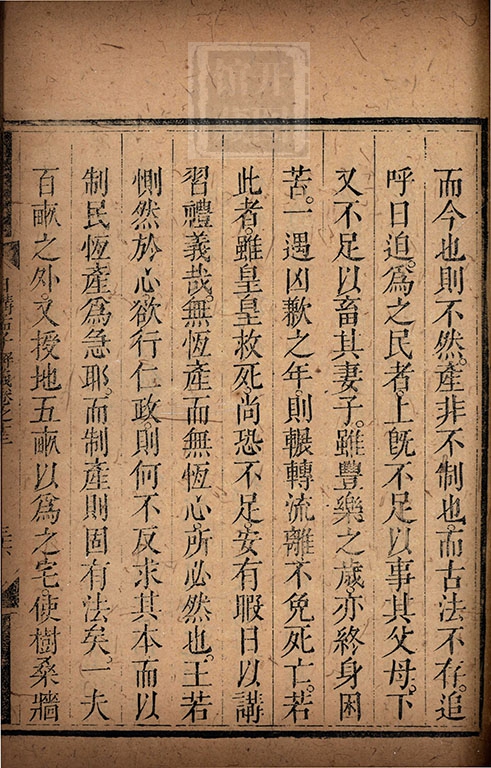 而今也則不然。產非不制也。而古法不存。追
呼日迫。爲之民者。上旣不足以事其父母。下
又不足以畜其妻子。雖豐樂之歲。亦終身困
苦。一遇凶歉之年。則輾轉流離。不免死亡。若
此者。雖皇皇救死尚恐不足。安有暇日以講
習禮義哉。無恆產而無恆心。所必然也。王若
惻然於心欲行仁政。則何不反求其本而以
制民恆產爲急耶。而制產則固有法矣。一夫
百畝之外。又授地五畝以爲之宅。使樹桑牆